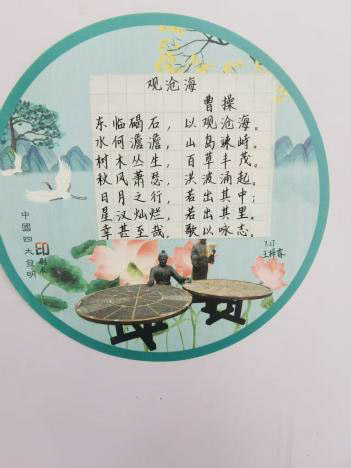 观沧海
曹操
东临碣石，以观沧海。
水何澹澹，山岛竦峙。
树木丛生，百草丰茂。
秋风萧瑟，洪波涌起。
日月之行，若出其中；
星汉灿烂，若出其里。
幸甚至哉，歌以咏志。
7.17
中國四大發明
印刷术